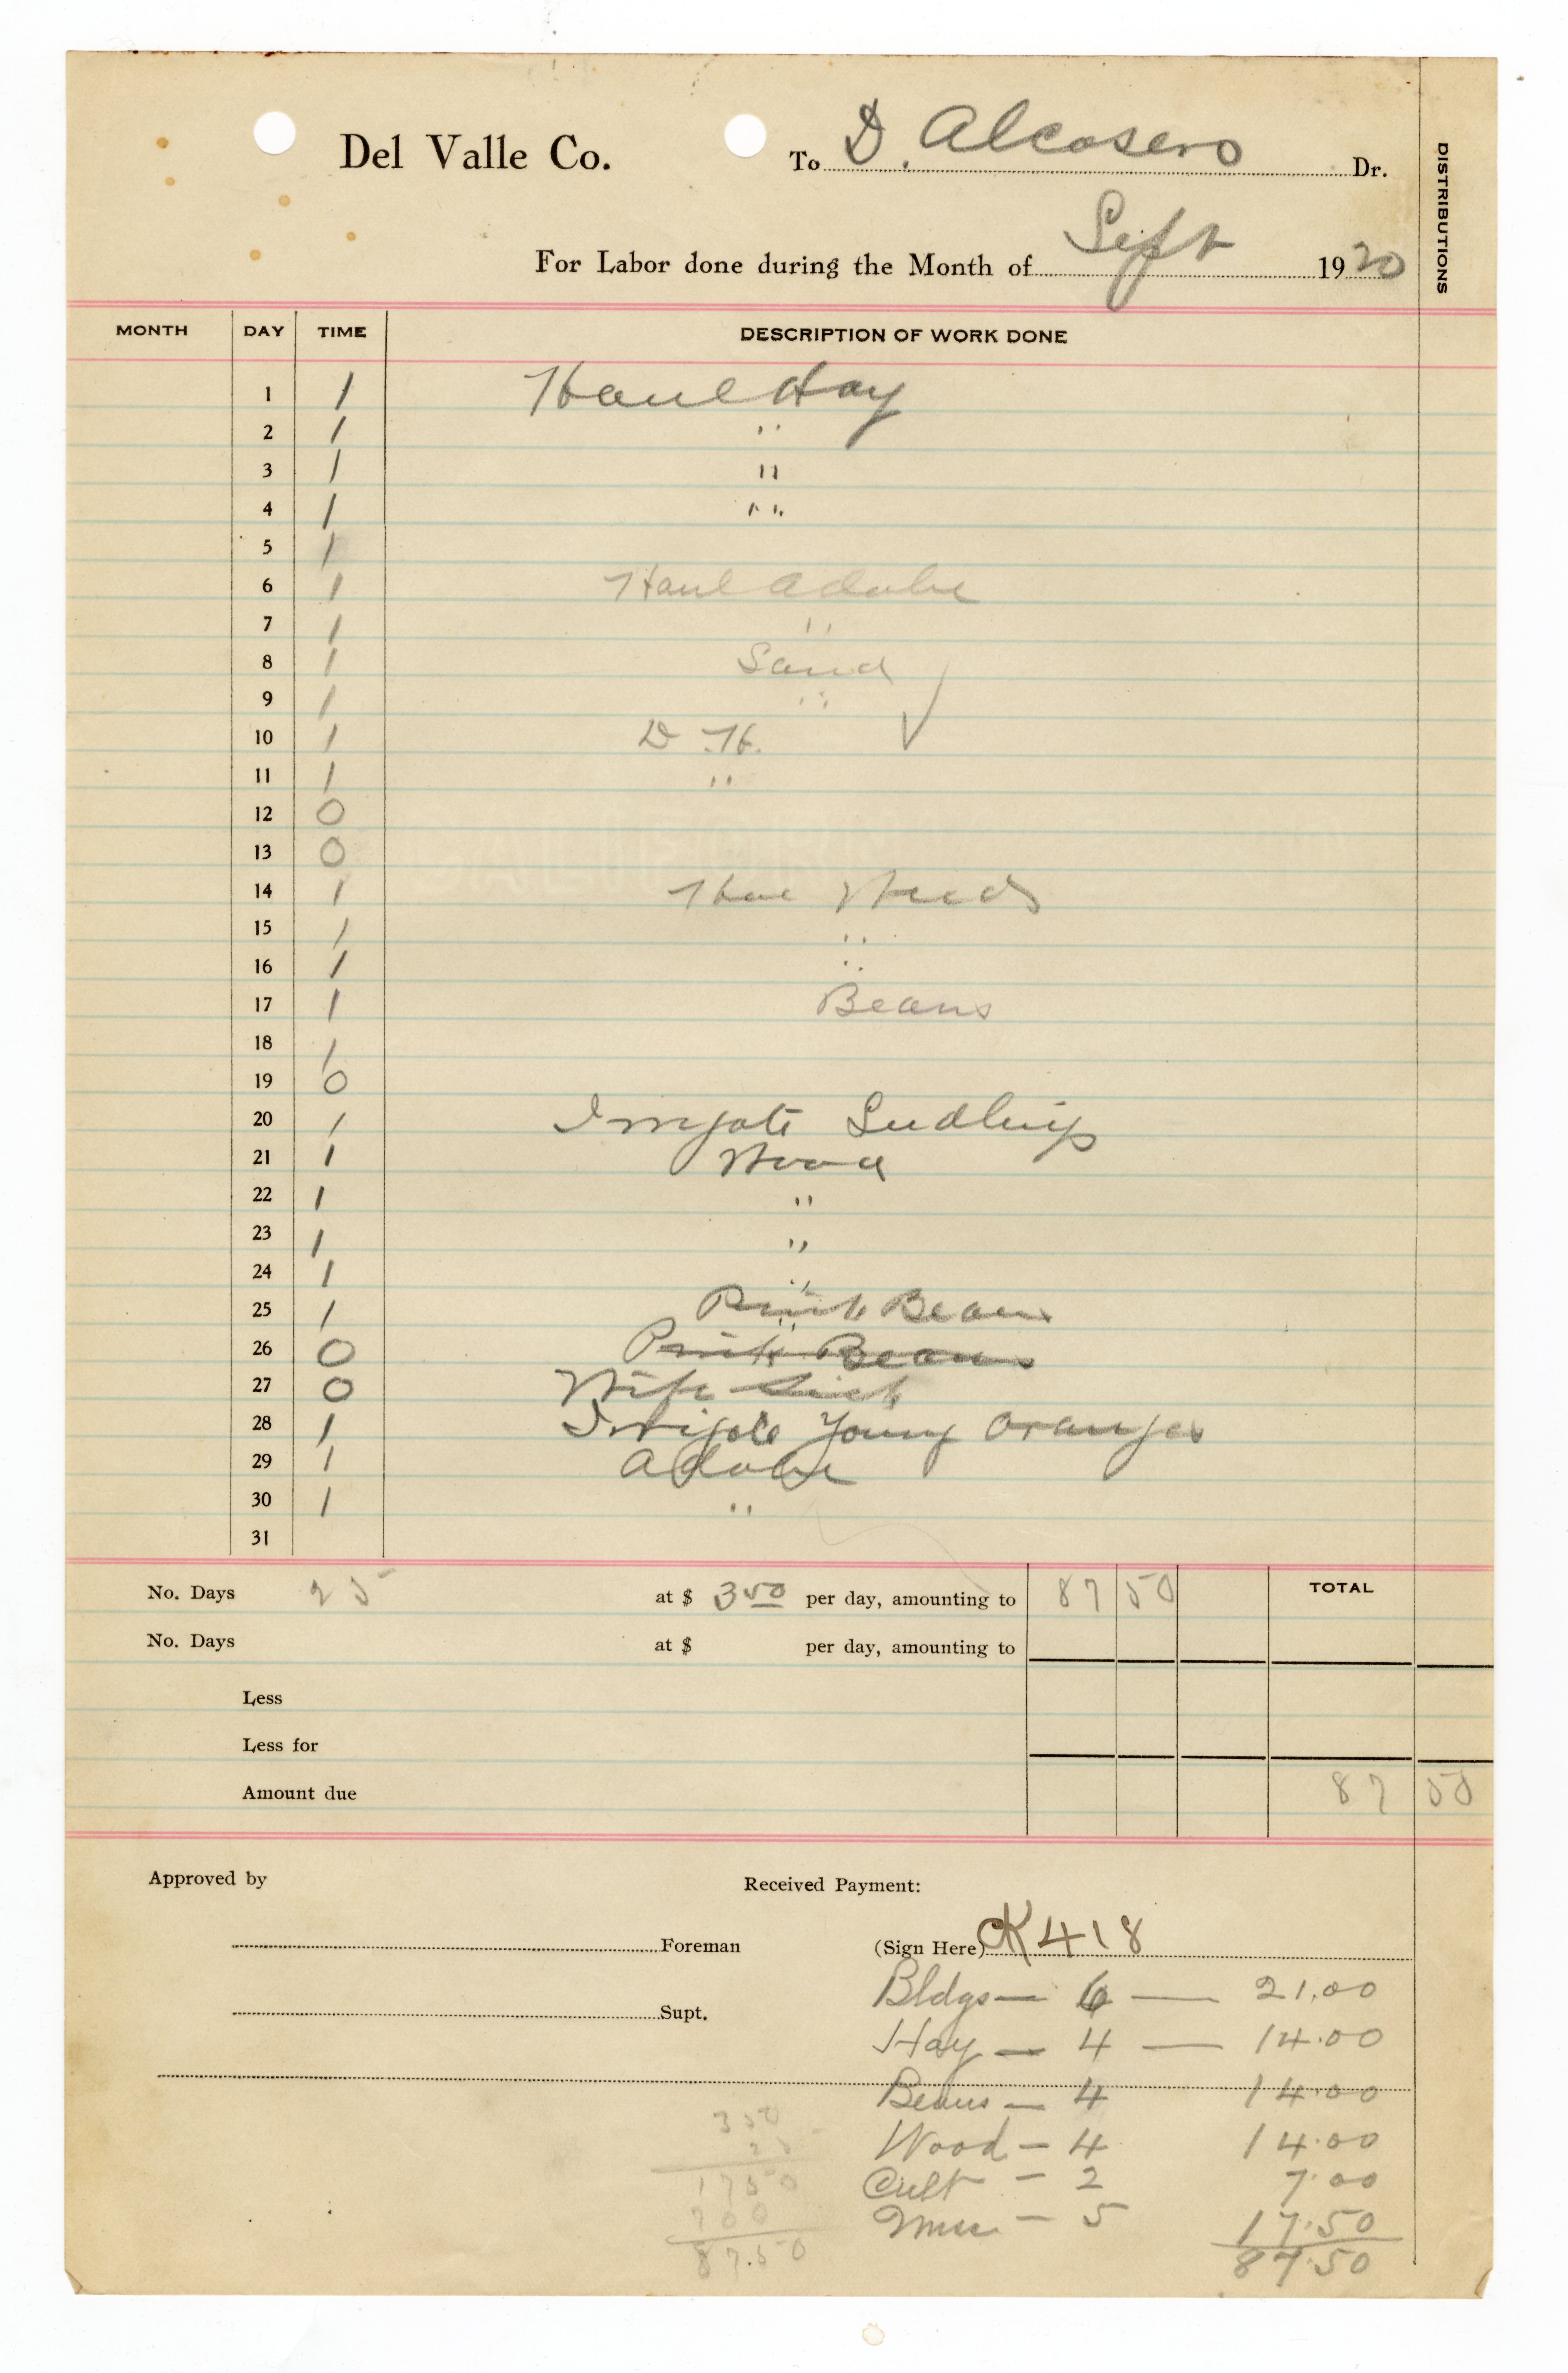 Del Valle Co. To D. Alcosero Dr.
DISTRIBUTIONS
For Labor done during the Month of Sept 1920
MONTH DAY TIME DESCRIPTION OF WORK DONE
1 1 Haul Hay
2 1 "
3 1 "
4 1 " "
5 1
6 1 Haul Adobe
7 1 "
8 1 Sand
9 1 "
10 1 D. H. ✓
11 1 "
12 0
13 0
14 1 Hoe Weeds
15 1 "
16 1 "
17 1 Beans
18 1
19 0
20 1 Irrigate
21 1 Wood
22 1 "
23 1 "
24 1 "
25 1 Pink Beans
26 0 Pink Beans
27 0 Wife Sick
28 1 Irrigate Young Oranges
29 1 Adobe
30 1 "
31
No. Days 25 at $ 3 50 per day, amounting to 87 50 TOTAL
No. Days at $ per day, amounting to
Less
Less for
Amount due 87 50
Approved by Received Payment:
Foreman (Sign Here) CK 418
Bldgs — 6 — 21.00
Supt.
Hay — 4 — 14.00
Beans — 4 14.00
350
25
Wood — 4 14.00
1750
Cult — 2 7.00
700
5 17.50
87.50 87.50